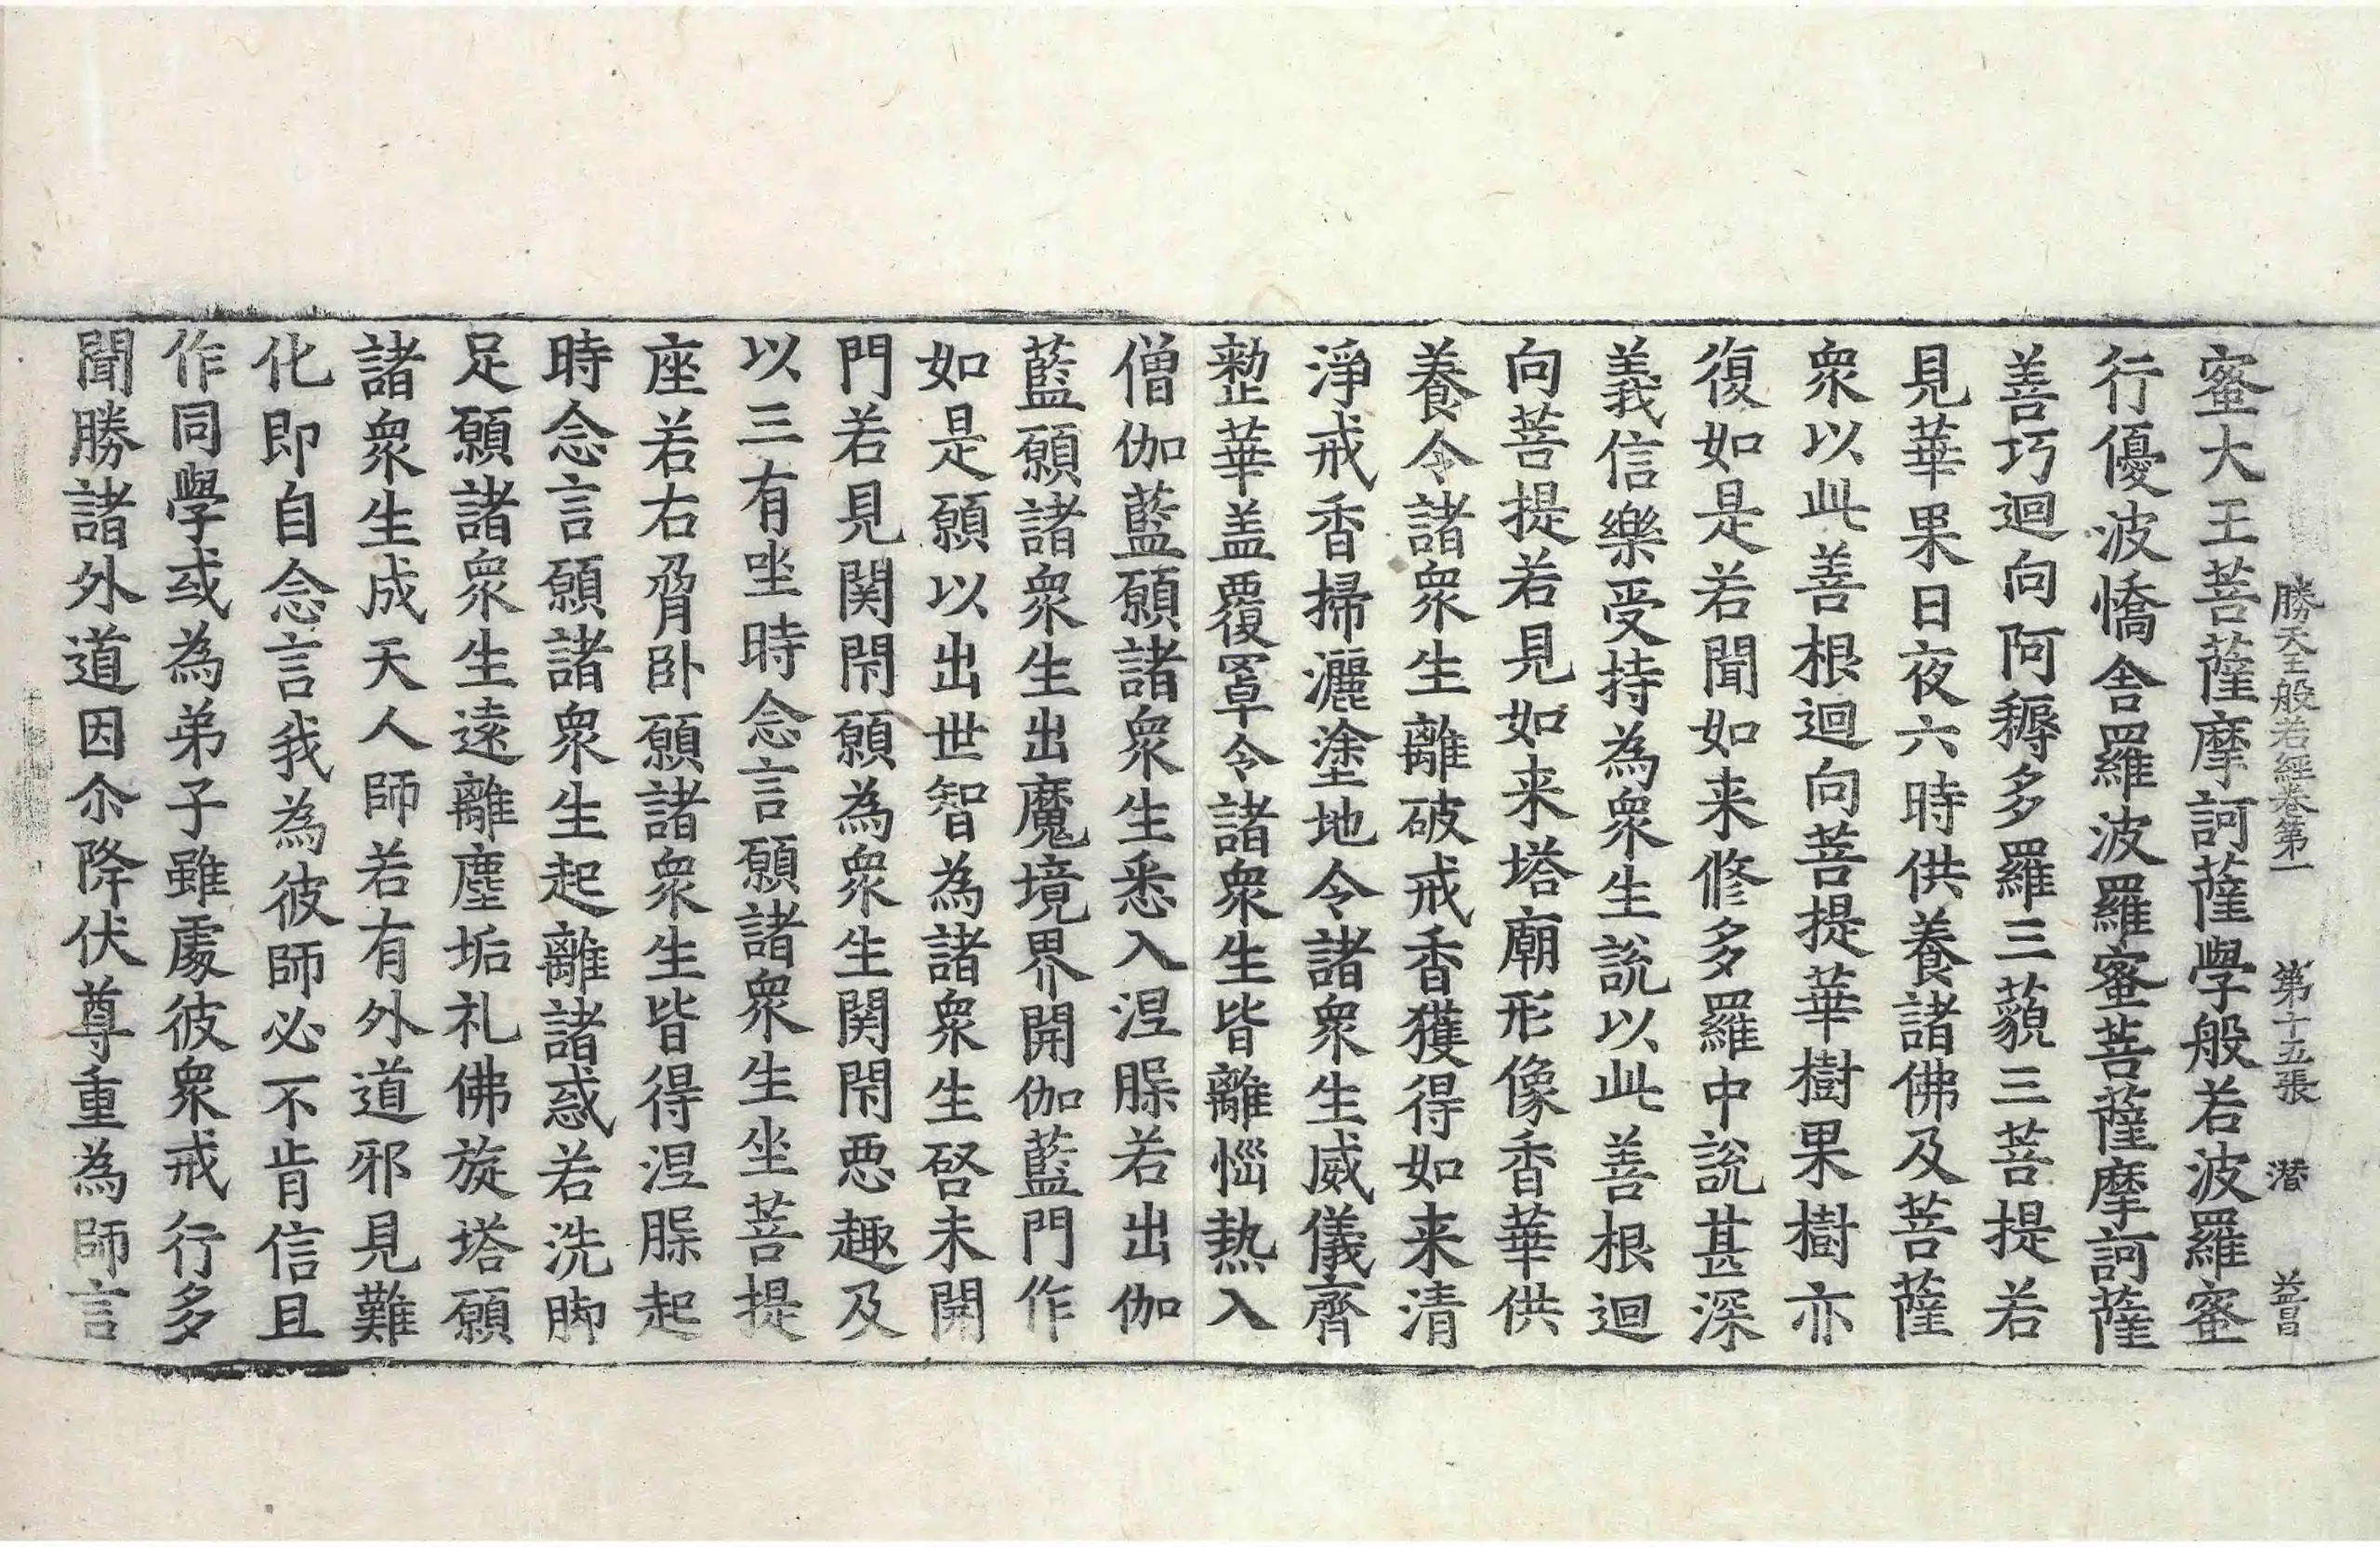 勝天王般若經卷第一 第十五張 潜 益昌
蜜大王菩薩摩訶薩學般若波羅蜜
行優波憍舍羅波羅蜜菩薩摩訶薩
善巧迴向阿耨多羅三藐三菩提若
見華果日夜六時供養諸佛及菩薩
衆以此善根迴向菩提華樹果樹亦
復如是若聞如来修多羅中說甚深
義信樂受持為衆生說以此善根迴
向菩提若見如来塔廟形像香華供
養令諸衆生離破戒香獲得如来清
淨戒香掃灑塗地令諸衆生威儀齊
整華盖覆罩令諸衆生皆離惱熱入
僧伽藍願諸衆生悉入涅槃若出伽
藍願諸衆生出魔境界開伽藍門作
如是願以出世智為諸衆生啓未開
門若見関閇願為衆生関閇惡趣及
以三有坐時念言願諸衆生坐菩提
座若右脅卧願諸衆生皆得涅槃起
時念言願諸衆生起離諸惑若洗脚
足願諸衆生遠離塵垢礼佛旋塔願
諸衆生成天人師若有外道邪見難
化即自念言我為彼師必不肯信且
作同學或為弟子雖處彼衆戒行多
聞勝諸外道因尒降伏尊重為師言